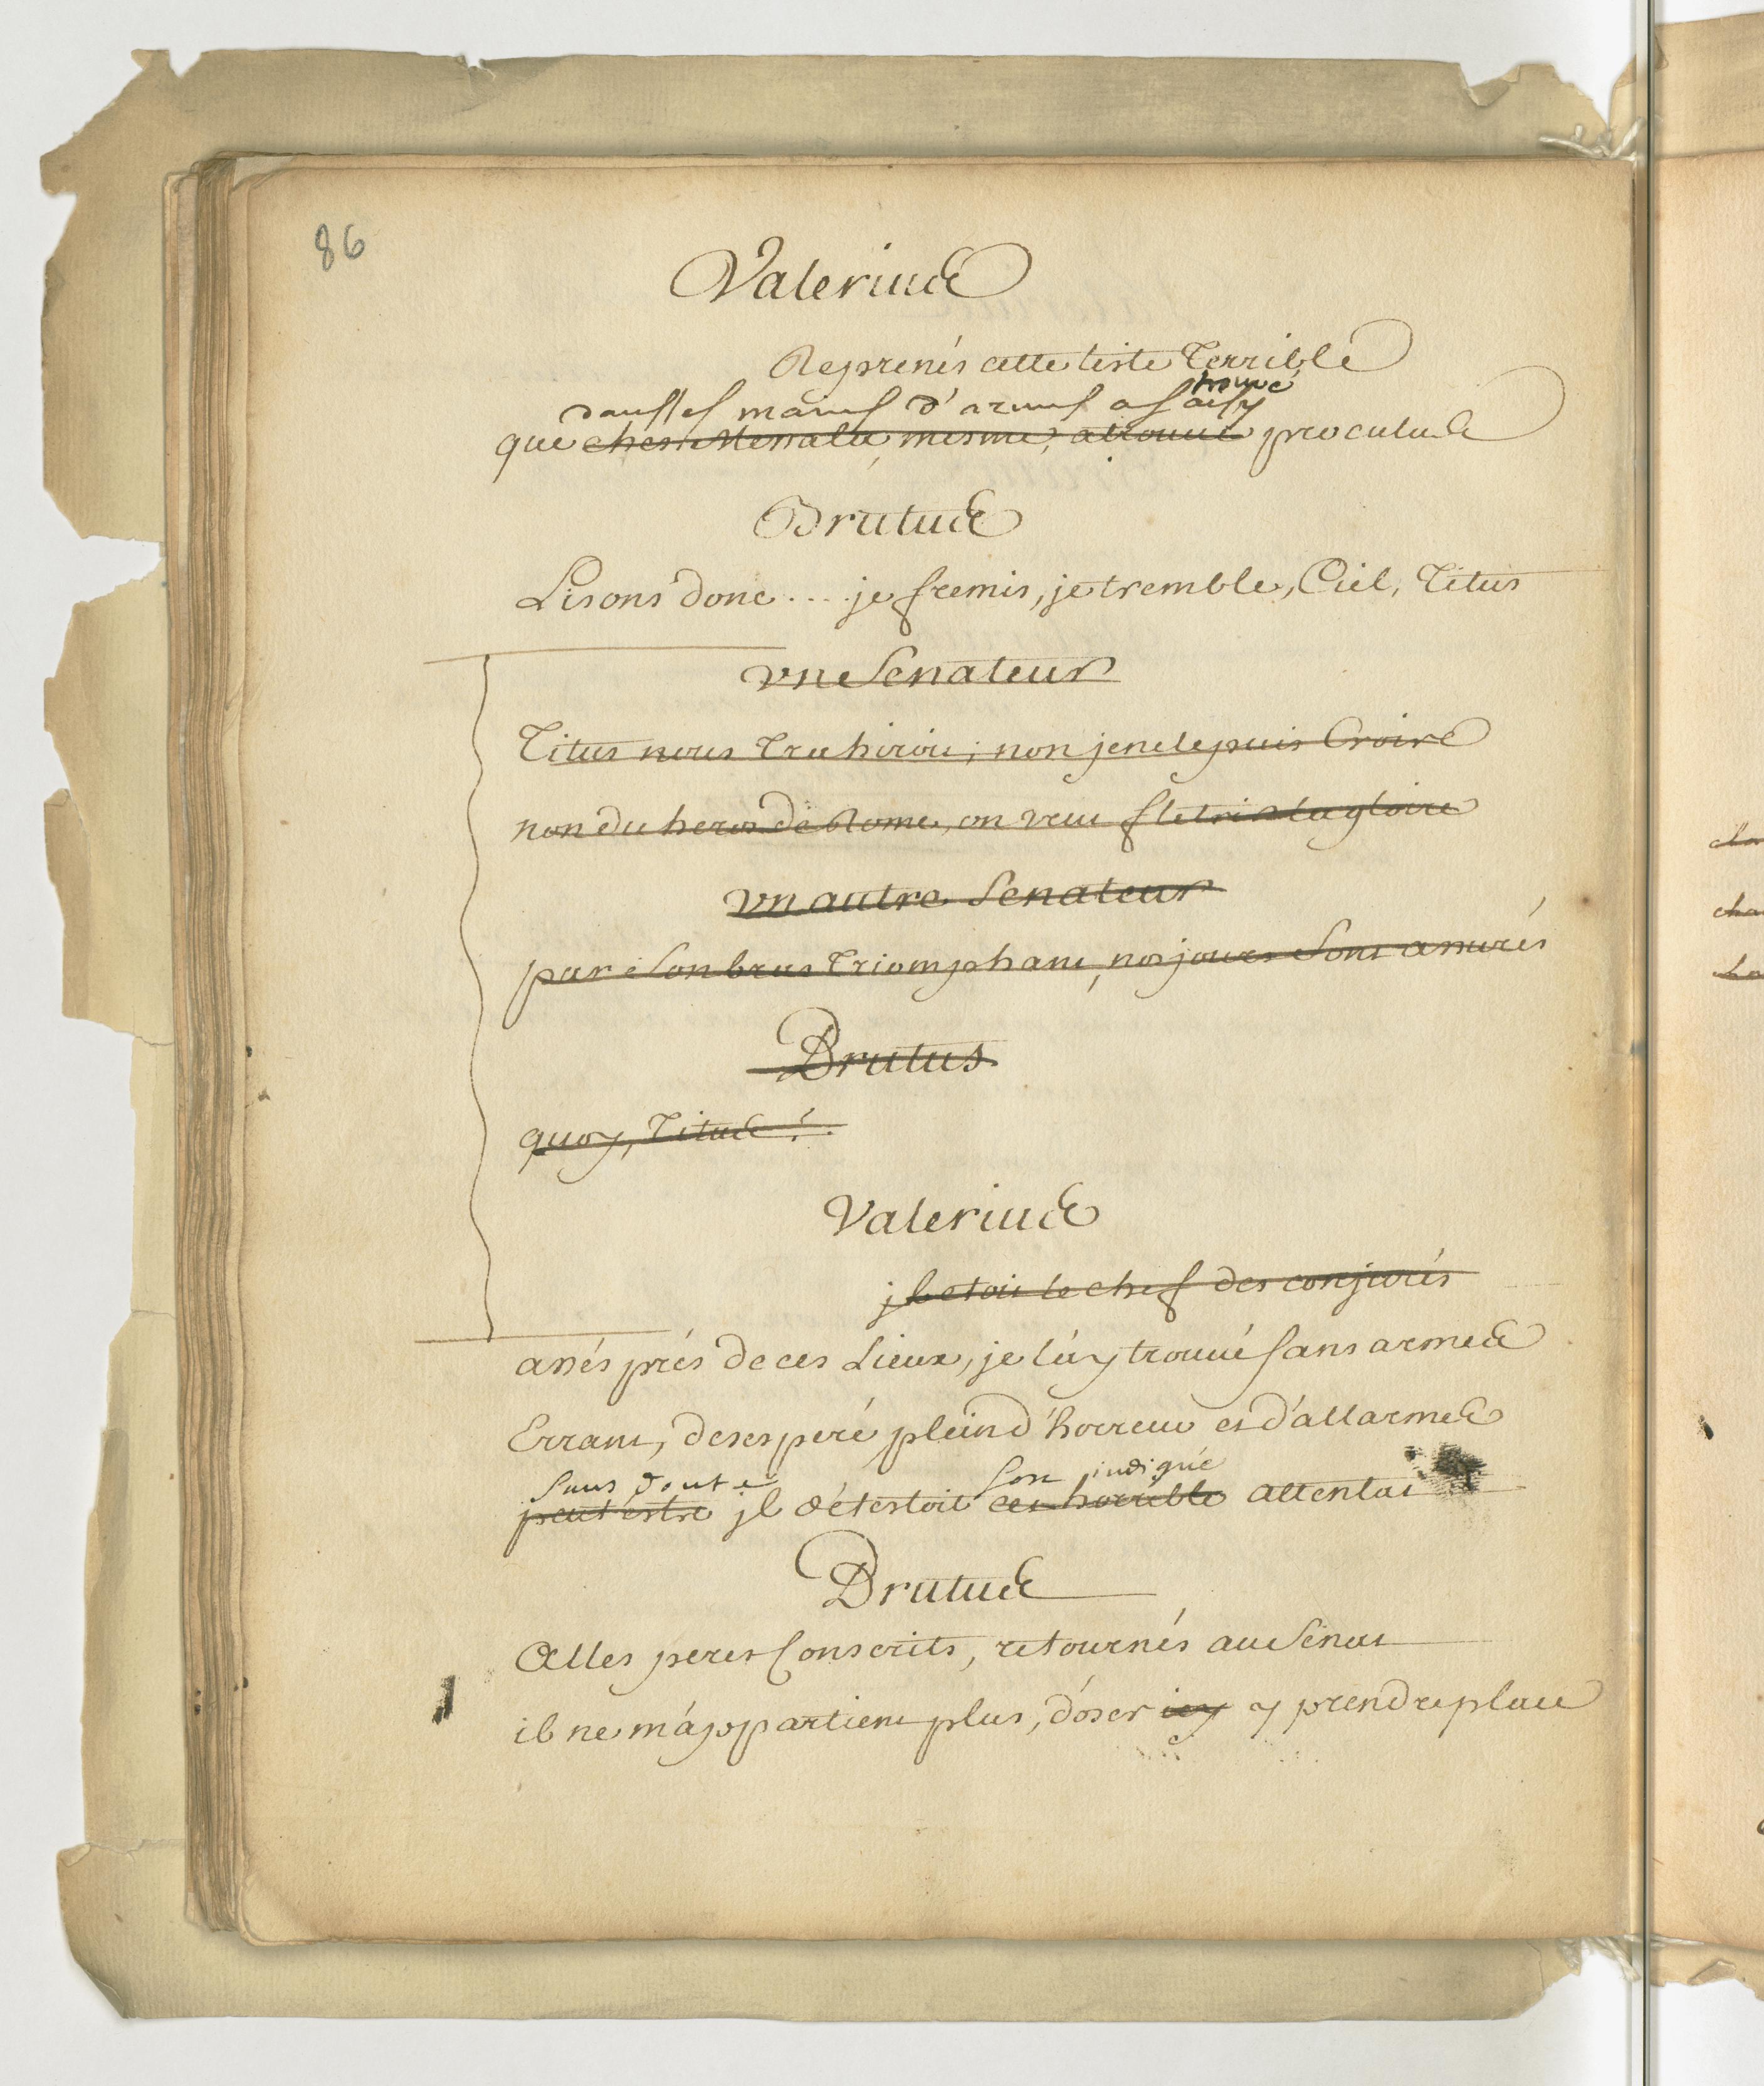 86
Valerius
Reprenés cette liste Terrible
trouvé
dans les mains d'aruns a saisy
que ches Messala, mesme, a trouué proculus
Brutus
Lisons donc .... je fremis, je tremble, Ciel, Titus
vn Senateur
Titus nous Trahiroit; non je ne le puis Croire
non du heros de Rome, on veut fletrir la gloire
vn autre Senateur
par son bras Triomphant, nos jours sont assurés
Brutus
quoy, Titus!
Valerius
jl etoit le chef des conjurés
assés prés de ces Lieux, je l'ay trouué sans armes
Errant, desesperé plein d'horreur et d'allarmes
sans doute son indigne
peut estre jl détestoit cet horrible attentat
Brutus
Alles peres Conscrits, retournés au Senat
il ne m'appartient plus, d'oser icy y prendre place